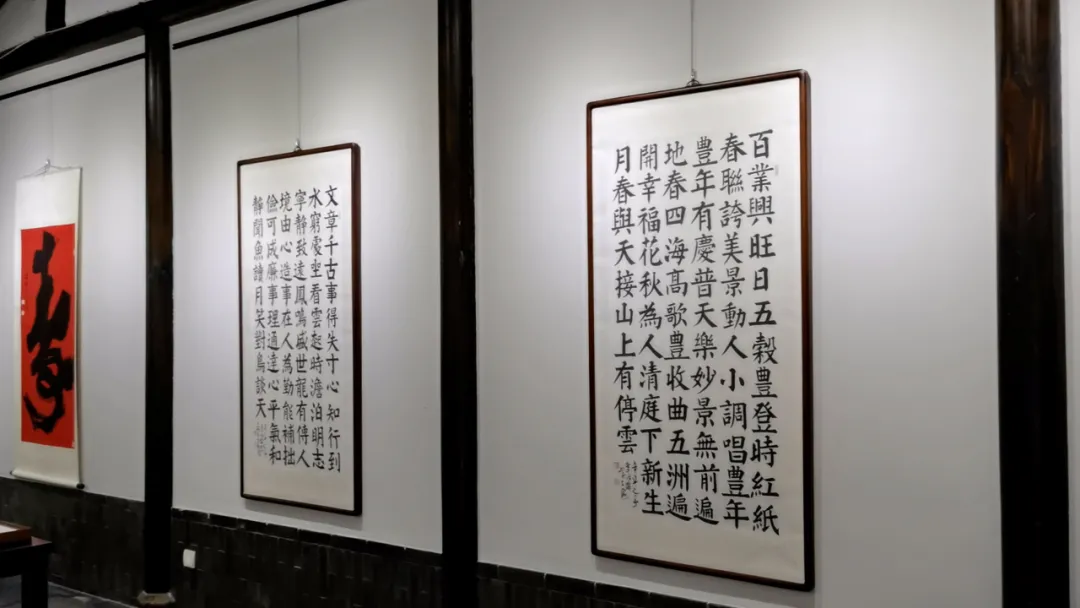 百業興旺日五穀豐登時紅紙
春聯誇美景動人小調唱豐年
豐年有慶普天樂妙景無前遍
地春四海高歌豐收曲五洲遍
開幸福花秋為人清庭下新生
月春與天接山上有停雲
文章千古事得失寸心知行到
水窮處坐看雲起時澹泊明志
寧靜致遠鳳鳴盛世龍有傳人
境由心造事在人為勤能補拙
儉可成廉事理通達心平氣和
靜聞魚讀月笑對鳥談天
壽